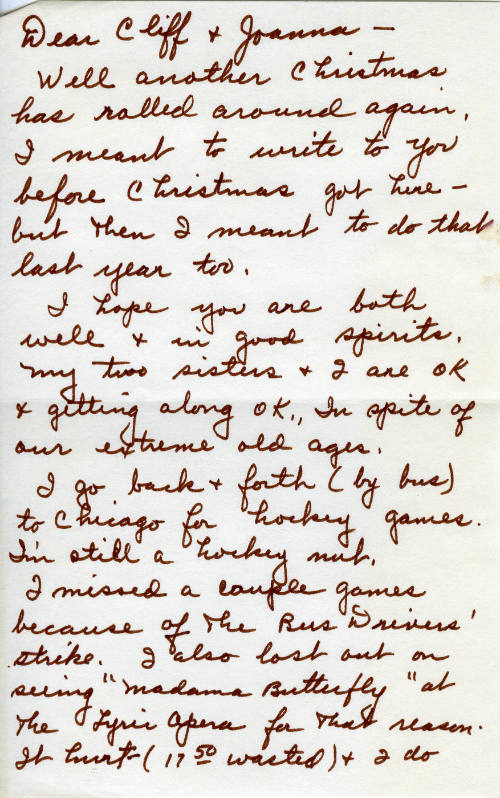 Dear Cliff & Joanna —
Well another Christmas
has rolled around again.
I meant to write to you
before Christmas got here —
but then I meant to do that
last year too.
I hope you are both
well & in good spirits.
My two sisters & I are OK
& getting along OK., In spite of
our extreme old ages.
I go back & forth (by bus)
to Chicago for hockey games.
I'm still a hockey nut.
I missed a couple games
because of the Bus Drivers'
strike. I also lost out on
seeing "Madama Butterfly" at
the Lyric Opera for that reason.
It hurt (17 50 wasted) & I do